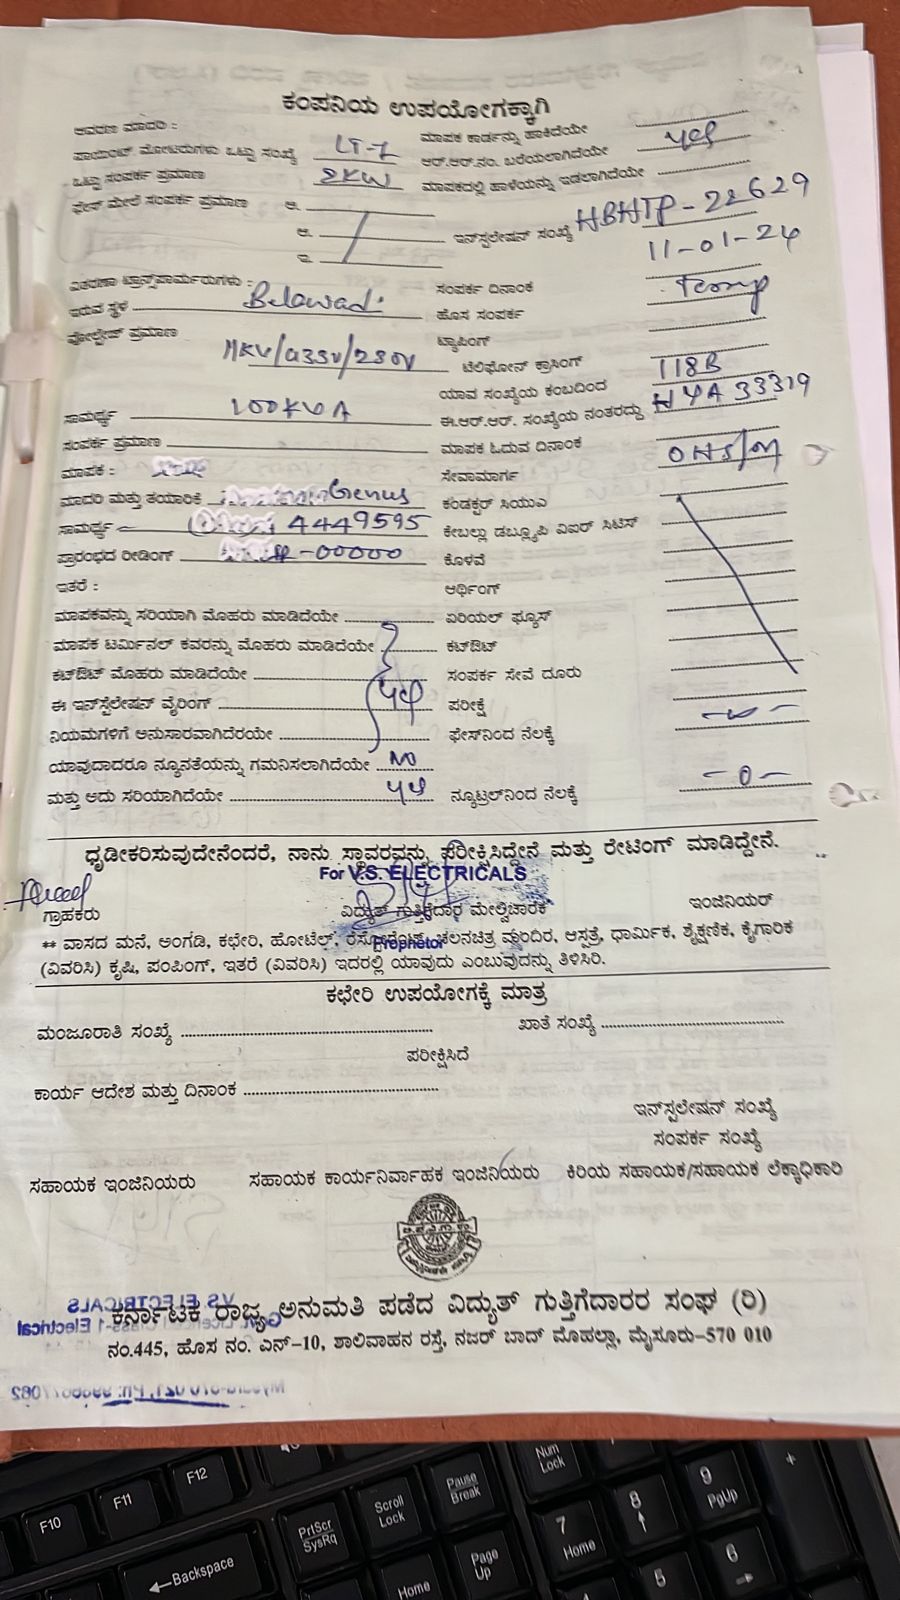 ಕಂಪನಿಯ ಉಪಯೋಗಕ್ಕಾಗಿ
ಆವರಣ ಮಾದರಿ : ಮಾಪಕ ಕಾರ್ಡನ್ನು ಹಾಕಿದೆಯೇ
ಪಾಯಿಂಟ್ ಮೋಟರುಗಳು ಒಟ್ಟು ಸಂಖ್ಯೆ LT-7 ಆರ್.ಆರ್.ನಂ. ಬರೆಯಲಾಗಿದೆಯೇ yes
ಒಟ್ಟು ಸಂಪರ್ಕ ಪ್ರಮಾಣ 2KW ಮಾಪಕದಲ್ಲಿ ಹಾಳೆಯನ್ನು ಇಡಲಾಗಿದೆಯೇ
ಫೇಸ್ ಮೇಲೆ ಸಂಪರ್ಕ ಪ್ರಮಾಣ ಅ.
ಆ. ಇನ್‌ಸ್ಟಲೇಷನ್ ಸಂಖ್ಯೆ HBHTP-22629
ಇ. 11-01-24
ವಿತರಣಾ ಟ್ರಾನ್ಸ್‌ಫಾರ್ಮರುಗಳು : ಸಂಪರ್ಕ ದಿನಾಂಕ
ಇರುವ ಸ್ಥಳ Belawadi ಹೊಸ ಸಂಪರ್ಕ Temp
ವೋಲ್ಟೇಜ್ ಪ್ರಮಾಣ ಟ್ಯಾಪಿಂಗ್
11KV/433V/230V ಟೆಲಿಫೋನ್ ಕ್ರಾಸಿಂಗ್
ಯಾವ ಸಂಖ್ಯೆಯ ಕಂಬದಿಂದ 118B
ಸಾಮರ್ಥ್ಯ 100KVA ಈ.ಆರ್.ಆರ್. ಸಂಖ್ಯೆಯ ನಂತರದ್ದು HYA 33319
ಸಂಪರ್ಕ ಪ್ರಮಾಣ ಮಾಪಕ ಓದುವ ದಿನಾಂಕ
ಮಾಪಕ : ಸೇವಾಮಾರ್ಗ
ಮಾದರಿ ಮತ್ತು ತಯಾರಿಕೆ Genus ಕಂಡಕ್ಟರ್ ಸಿಯುಎ
ಸಾಮರ್ಥ್ಯ 4449595 ಕೇಬಲ್ಲು ಡಬ್ಲ್ಯೂಪಿ ವಿಐಆರ್ ಸಿಟಿಸ್
ಪ್ರಾರಂಭದ ರೀಡಿಂಗ್ -00000 ಕೊಳವೆ
ಇತರೆ : ಆರ್ಥಿಂಗ್
ಮಾಪಕವನ್ನು ಸರಿಯಾಗಿ ಮೊಹರು ಮಾಡಿದೆಯೇ ಏರಿಯಲ್ ಫ್ಯೂಸ್
ಮಾಪಕ ಟರ್ಮಿನಲ್ ಕವರನ್ನು ಮೊಹರು ಮಾಡಿದೆಯೇ ಕಟ್‌ಔಟ್
ಕಟ್‌ಔಟ್ ಮೊಹರು ಮಾಡಿದೆಯೇ ಸಂಪರ್ಕ ಸೇವೆ ದೂರು
ಈ ಇನ್‌ಸ್ಟೆಲೇಷನ್ ವೈರಿಂಗ್ yes ಪರೀಕ್ಷೆ
ನಿಯಮಗಳಿಗೆ ಅನುಸಾರವಾಗಿದೆರಯೇ ಫೇಸ್‌ನಿಂದ ನೆಲಕ್ಕೆ
ಯಾವುದಾದರೂ ನ್ಯೂನತೆಯನ್ನು ಗಮನಿಸಲಾಗಿದೆಯೇ NO
ಮತ್ತು ಅದು ಸರಿಯಾಗಿದೆಯೇ yes ನ್ಯೂಟ್ರಲ್‌ನಿಂದ ನೆಲಕ್ಕೆ -0-
ಧೃಡೀಕರಿಸುವುದೇನೆಂದರೆ, ನಾನು ಸ್ಥಾವರವನ್ನು ಪರೀಕ್ಷಿಸಿದ್ದೇನೆ ಮತ್ತು ರೇಟಿಂಗ್ ಮಾಡಿದ್ದೇನೆ.
For V.S. ELECTRICALS
ಗ್ರಾಹಕರು ವಿದ್ಯುತ್ ಗುತ್ತಿಗೆದಾರ ಮೇಲ್ವಿಚಾರಕ ಇಂಜಿನಿಯರ್
Proprietor
** ವಾಸದ ಮನೆ, ಅಂಗಡಿ, ಕಛೇರಿ, ಹೋಟೆಲ್, ರೆಸ್ಟೋರೆಂಟ್, ಚಲನಚಿತ್ರ ಮಂದಿರ, ಆಸ್ಪತ್ರೆ, ಧಾರ್ಮಿಕ, ಶೈಕ್ಷಣಿಕ, ಕೈಗಾರಿಕ
(ವಿವರಿಸಿ) ಕೃಷಿ, ಪಂಪಿಂಗ್, ಇತರೆ (ವಿವರಿಸಿ) ಇದರಲ್ಲಿ ಯಾವುದು ಎಂಬುವುದನ್ನು ತಿಳಿಸಿರಿ.
ಕಛೇರಿ ಉಪಯೋಗಕ್ಕೆ ಮಾತ್ರ
ಮಂಜೂರಾತಿ ಸಂಖ್ಯೆ ಖಾತೆ ಸಂಖ್ಯೆ
ಪರೀಕ್ಷಿಸಿದೆ
ಕಾರ್ಯ ಆದೇಶ ಮತ್ತು ದಿನಾಂಕ
ಇನ್‌ಸ್ಟಲೇಷನ್ ಸಂಖ್ಯೆ
ಸಂಪರ್ಕ ಸಂಖ್ಯೆ
ಸಹಾಯಕ ಇಂಜಿನಿಯರು ಸಹಾಯಕ ಕಾರ್ಯನಿರ್ವಾಹಕ ಇಂಜಿನಿಯರು ಕಿರಿಯ ಸಹಾಯಕ/ಸಹಾಯಕ ಲೆಕ್ಕಾಧಿಕಾರಿ
ಕರ್ನಾಟಕ ರಾಜ್ಯ ಅನುಮತಿ ಪಡೆದ ವಿದ್ಯುತ್ ಗುತ್ತಿಗೆದಾರರ ಸಂಘ (ರಿ)
ನಂ.445, ಹೊಸ ನಂ. ಎನ್-10, ಶಾಲಿವಾಹನ ರಸ್ತೆ, ನಜರ್ ಬಾದ್ ಮೊಹಲ್ಲಾ, ಮೈಸೂರು-570 010
F10 F11 F12 PrtScr SysRq Scroll Lock Pause Break Num Lock
Backspace Home Page Up 7 Home 8 9 PgUp + 5 6